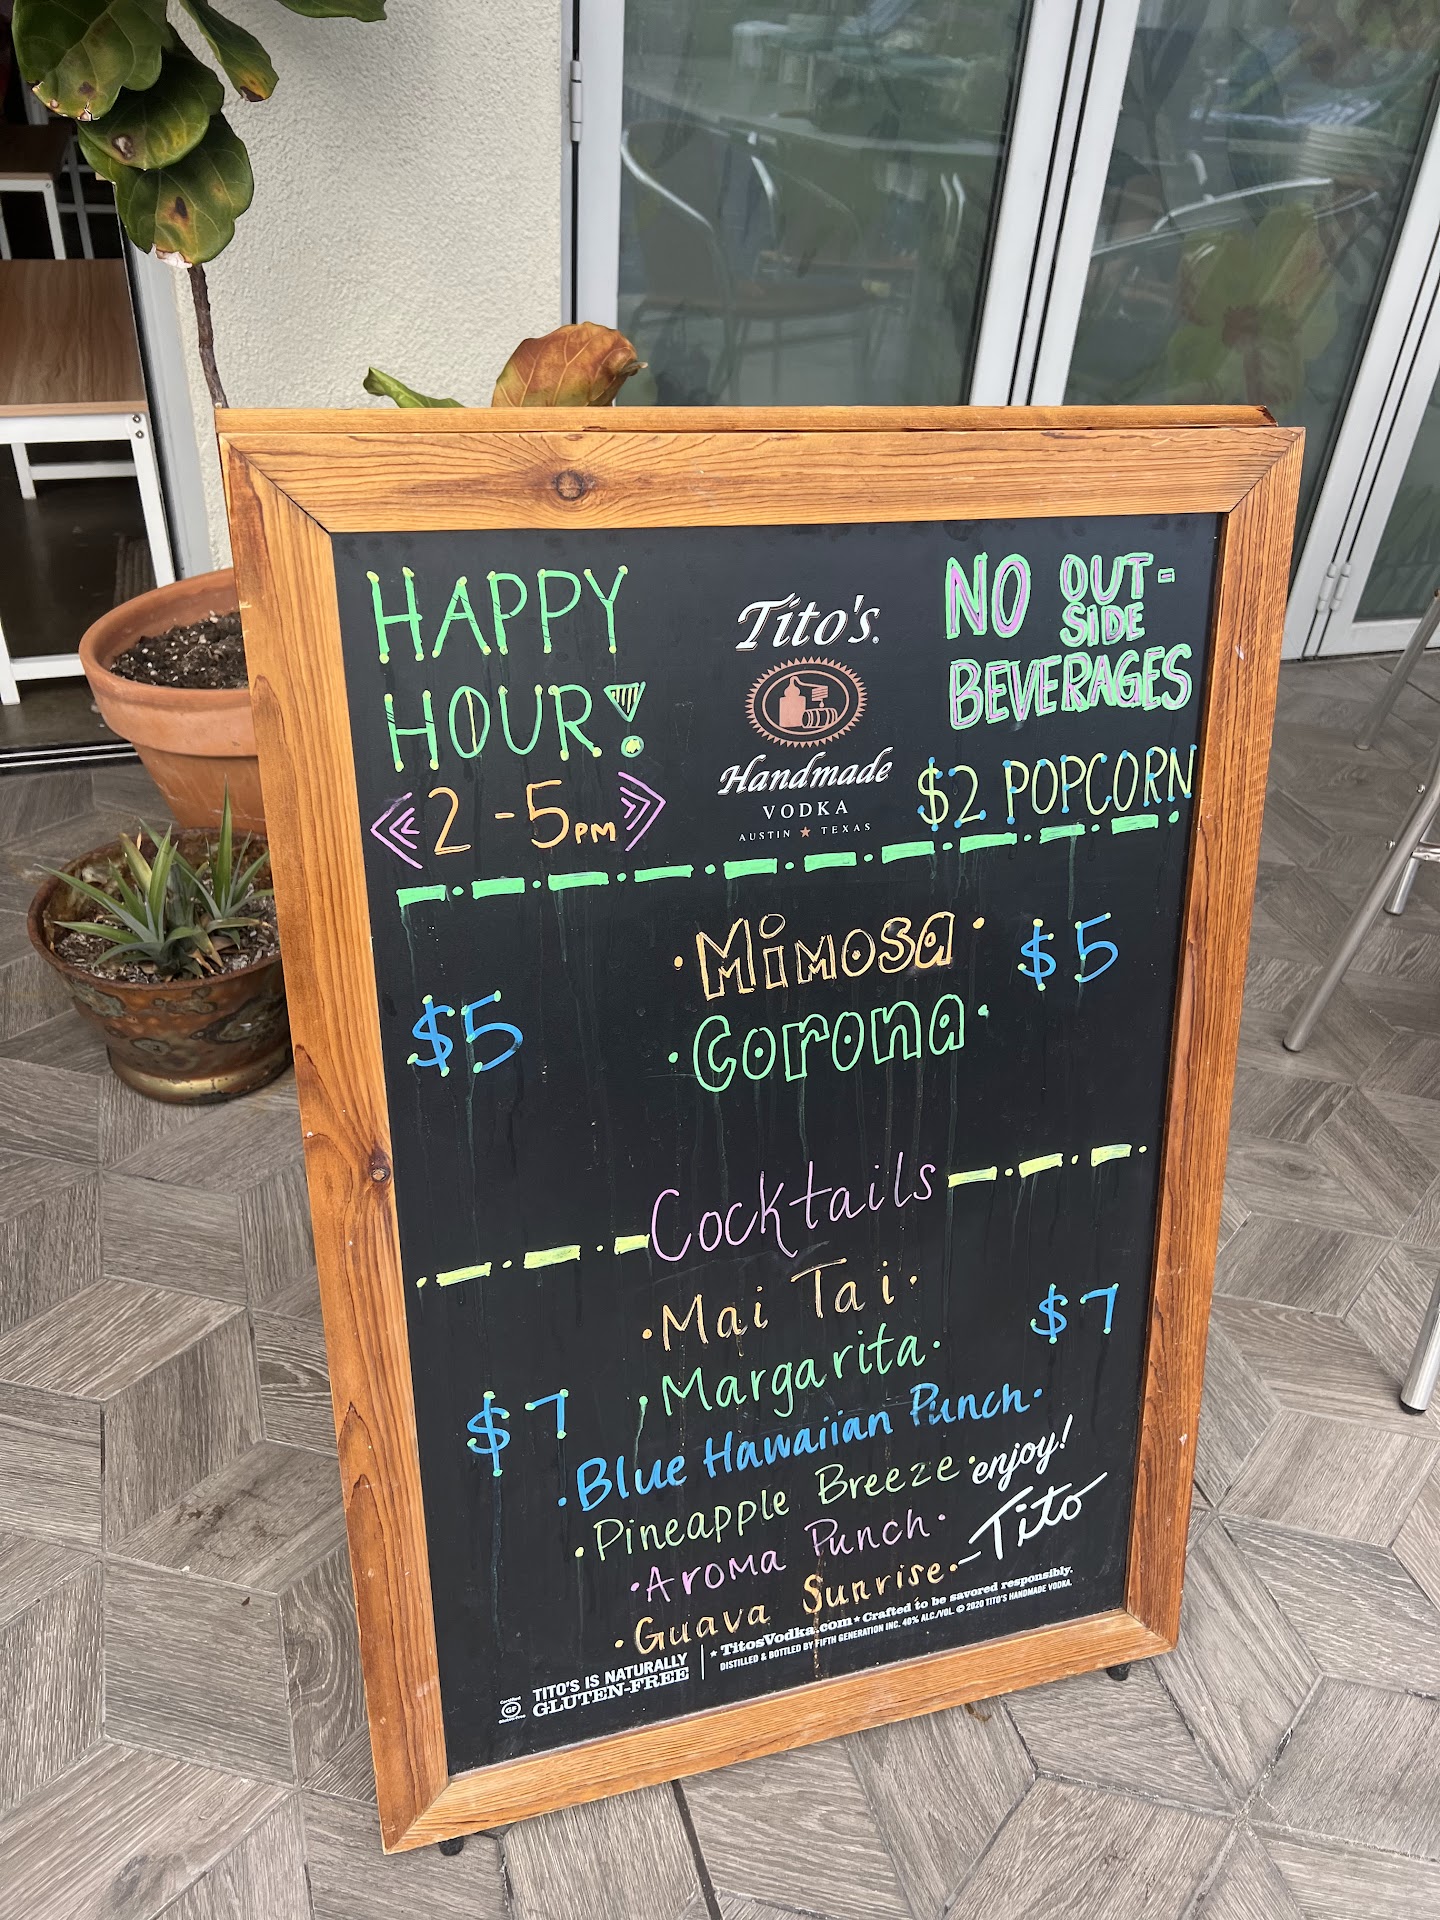 HAPPY
HOUR!
2-5PM
Tito's
Handmade
VODKA
AUSTIN ★ TEXAS
NO OUT-
SIDE
BEVERAGES
$2 POPCORN
· Mimosa · $5
$5 · Corona ·
Cocktails
· Mai Tai ·
$7
· Margarita ·
$7
· Blue Hawaiian Punch ·
· Pineapple Breeze ·
enjoy!
· Aroma Punch ·
-Tito
· Guava Sunrise ·
Certified
GF
Gluten-Free
TITO'S IS NATURALLY
GLUTEN-FREE
★ TitosVodka.com ★ Crafted to be savored responsibly.
DISTILLED & BOTTLED BY FIFTH GENERATION INC. 40% ALC./VOL. © 2020 TITO'S HANDMADE VODKA.